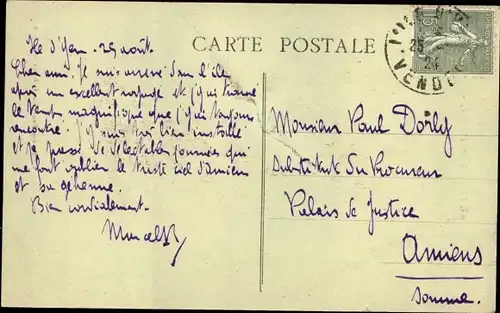 Ile d'Yeu. 25 août.
CARTE POSTALE
Cher ami. Je suis arrivé dans l'île
après un excellent voyage et j'y ai trouvé
le temps magnifique que j'y ai toujours
rencontré. J'y suis très bien installé
et je passe de délectables journées qui
me font oublier le triste ciel d'Amiens
et sa géhenne.
Bien cordialement.
Marcel
Monsieur Paul Dorly
Substitut du Procureur
Palais de Justice
Amiens
Somme.
15
25
24
VENDÉE